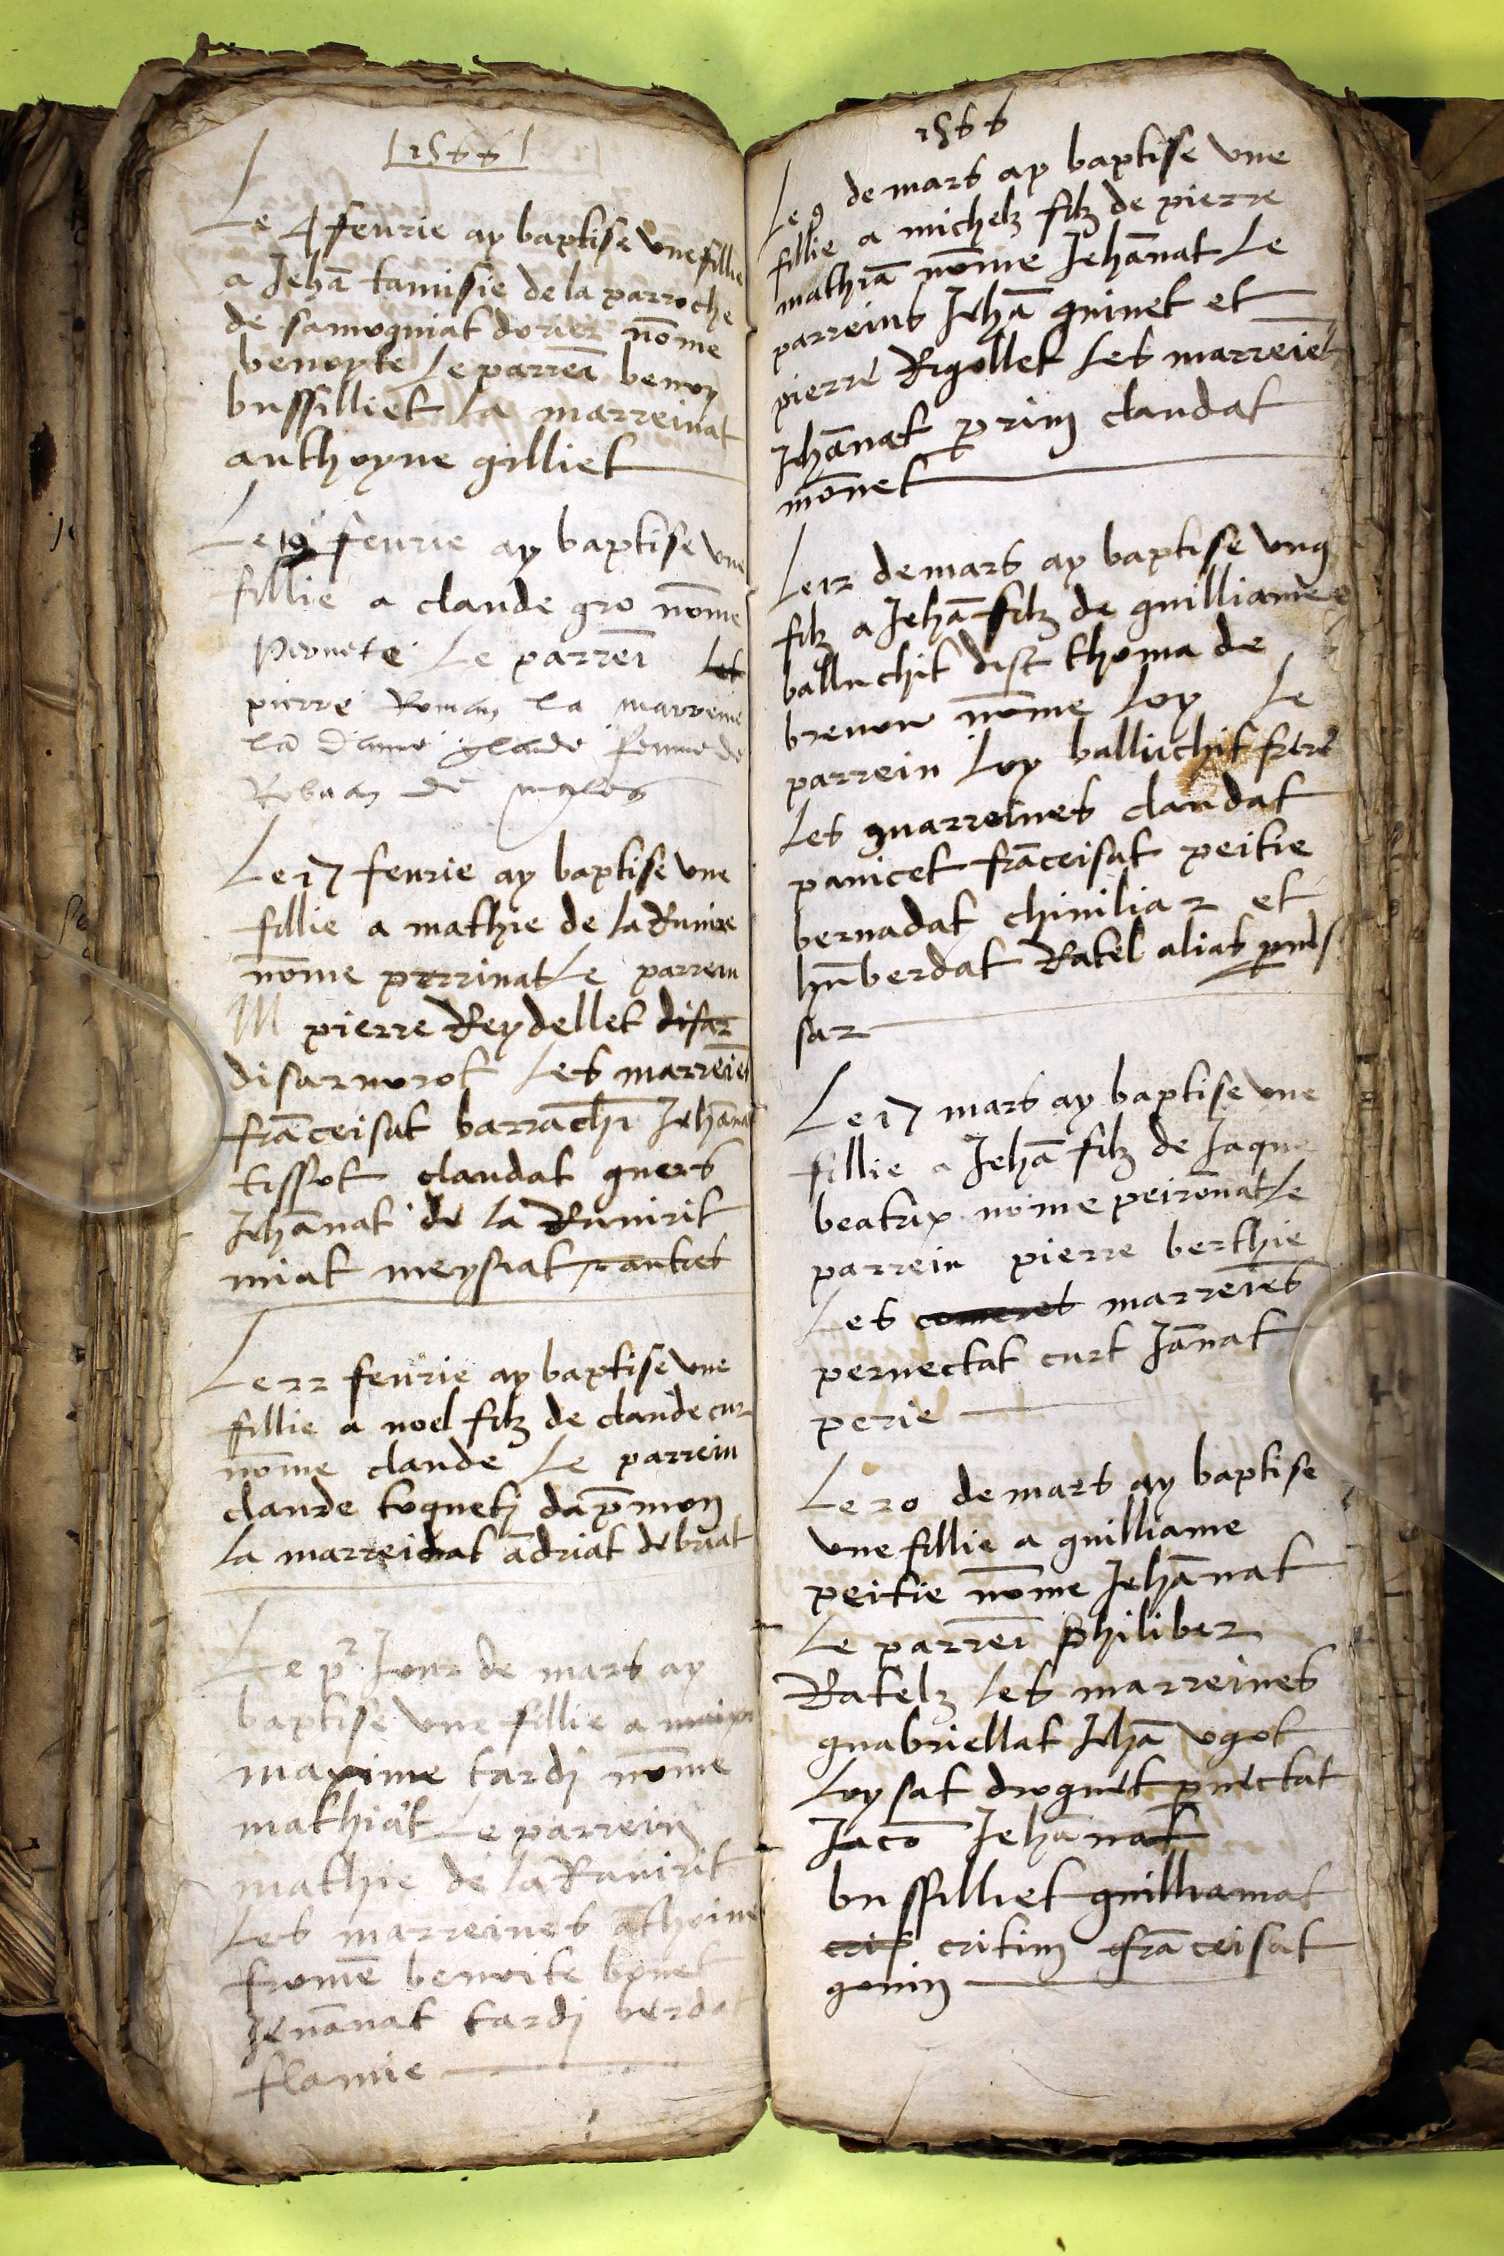 1566
Le 4 feurie ay baptise une fillie
a Jehā tamisie de la parroche
de samogniat dorier nōme
benoyte Le parreī benoy
bussilliet La marreinat
anthoyne gilliet
Le 10 feurie ay baptise une
fillie a claude gro nōme
Pernete Le parreī Les
pierre Roman la marreine
la dame glaude femme de
de
Le 17 feurie ay baptise une
fillie a mathie de la Ruuire
nōme perrinat Le parrein
M pierre Reydellet disar
disarnorot Les marreīes
frāceisat barrachī Jehānat
tissot claudat guers
Jehānat de la Ruuirit
miat meysiat
Le 22 feurie ay baptise une
fillie a noel filz de claude cur
nōme claude Le parrein
claude toquetz dapmon
La marreinat ādriat debuat
Le pr Jour de mars ay
baptise une fillie a
maxime tardj nōme
mathiat Le parrein
mathie de la Ruuirit
Les marreines āthoine
fromē benoite bonet
Jehānat tardj berdat
flamie
1566
Le 9 de mars ay baptise une
fillie a michelz filz de pierre
mathiā nōme Jehānat Le
parreins Jehā guinet et
pierre Rigollet Les marreīes
Jehānat prin claudat
mōnet
Le 12 de mars ay baptise ung
filz a Jehā filz de guilliame
balluchit dist thoma de
brenon nōme Loy Le
parrein Loy balluchit frere
Les marreines claudat
panicet frāceisat peitie
bernadat chiniliar et
hūberdat Ratel alias
sar
Le 17 mars ay baptise une
fillie a Jehā filz de Jaque
beatrix nōme peirōnat Le
parrein pierre berthie
Les comeres marreīes
pernectat curt Jānat
perie
Le 20 de mars ay baptise
une fillie a guilliame
peitie nōme Jehānat
Le parreī philiber
Ratelz Les marreines
guabriellat Jehā ugot
Loysat droguet pnectat
Jaco Jehānat
bussilliet guilliamat
cris critin frāceisat
gonin